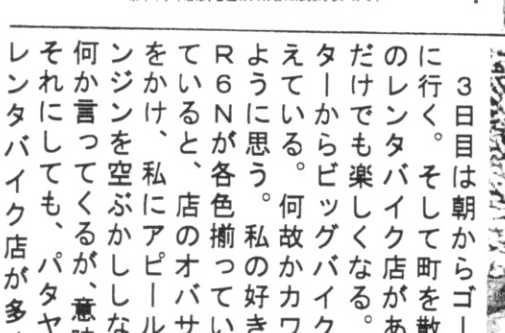 ３日目は朝からゴー
に行く。そして町を散
のレンタバイク店があ
だけでも楽しくなる。
ターからビッグバイク
えている。何故かカワ
ように思う。私の好き
Ｒ６Ｎが各色揃ってい
ていると、店のオバサ
をかけ、私にアピール
ンジンを空ぶかししな
何か言ってくるが、意味
それにしても、パタヤ
レンタバイク店が多